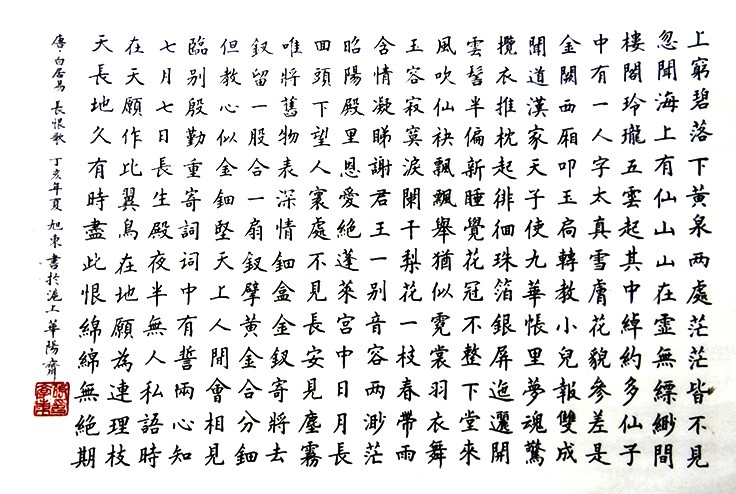 上窮碧落下黃泉兩處茫茫皆不見
忽聞海上有仙山山在靈無縹緲間
樓閣玲瓏五雲起其中綽約多仙子
中有一人字太真雪膚花貌參差是
金闕西厢叩玉扃轉教小兒報雙成
聞道漢家天子使九華帳里夢魂驚
攬衣推枕起徘徊珠箔銀屏迤邐開
雲髻半偏新睡覺花冠不整下堂來
風吹仙袂飄飄舉猶似霓裳羽衣舞
玉容寂寞淚闌干梨花一枝春帶雨
含情凝睇謝君王一別音容兩渺茫
昭陽殿里恩愛絕蓬萊宮中日月長
回頭下望人寰處不見長安見塵霧
唯將舊物表深情鈿盒金釵寄將去
釵留一股合一扇釵擘黃金合分鈿
但教心似金鈿堅天上人間會相見
臨別殷勤重寄詞詞中有誓兩心知
七月七日長生殿夜半無人私語時
在天願作比翼鳥在地願為連理枝
天長地久有時盡此恨綿綿無絕期
唐·白居易 長恨歌 丁亥年夏 旭東書於滬上華陽齋